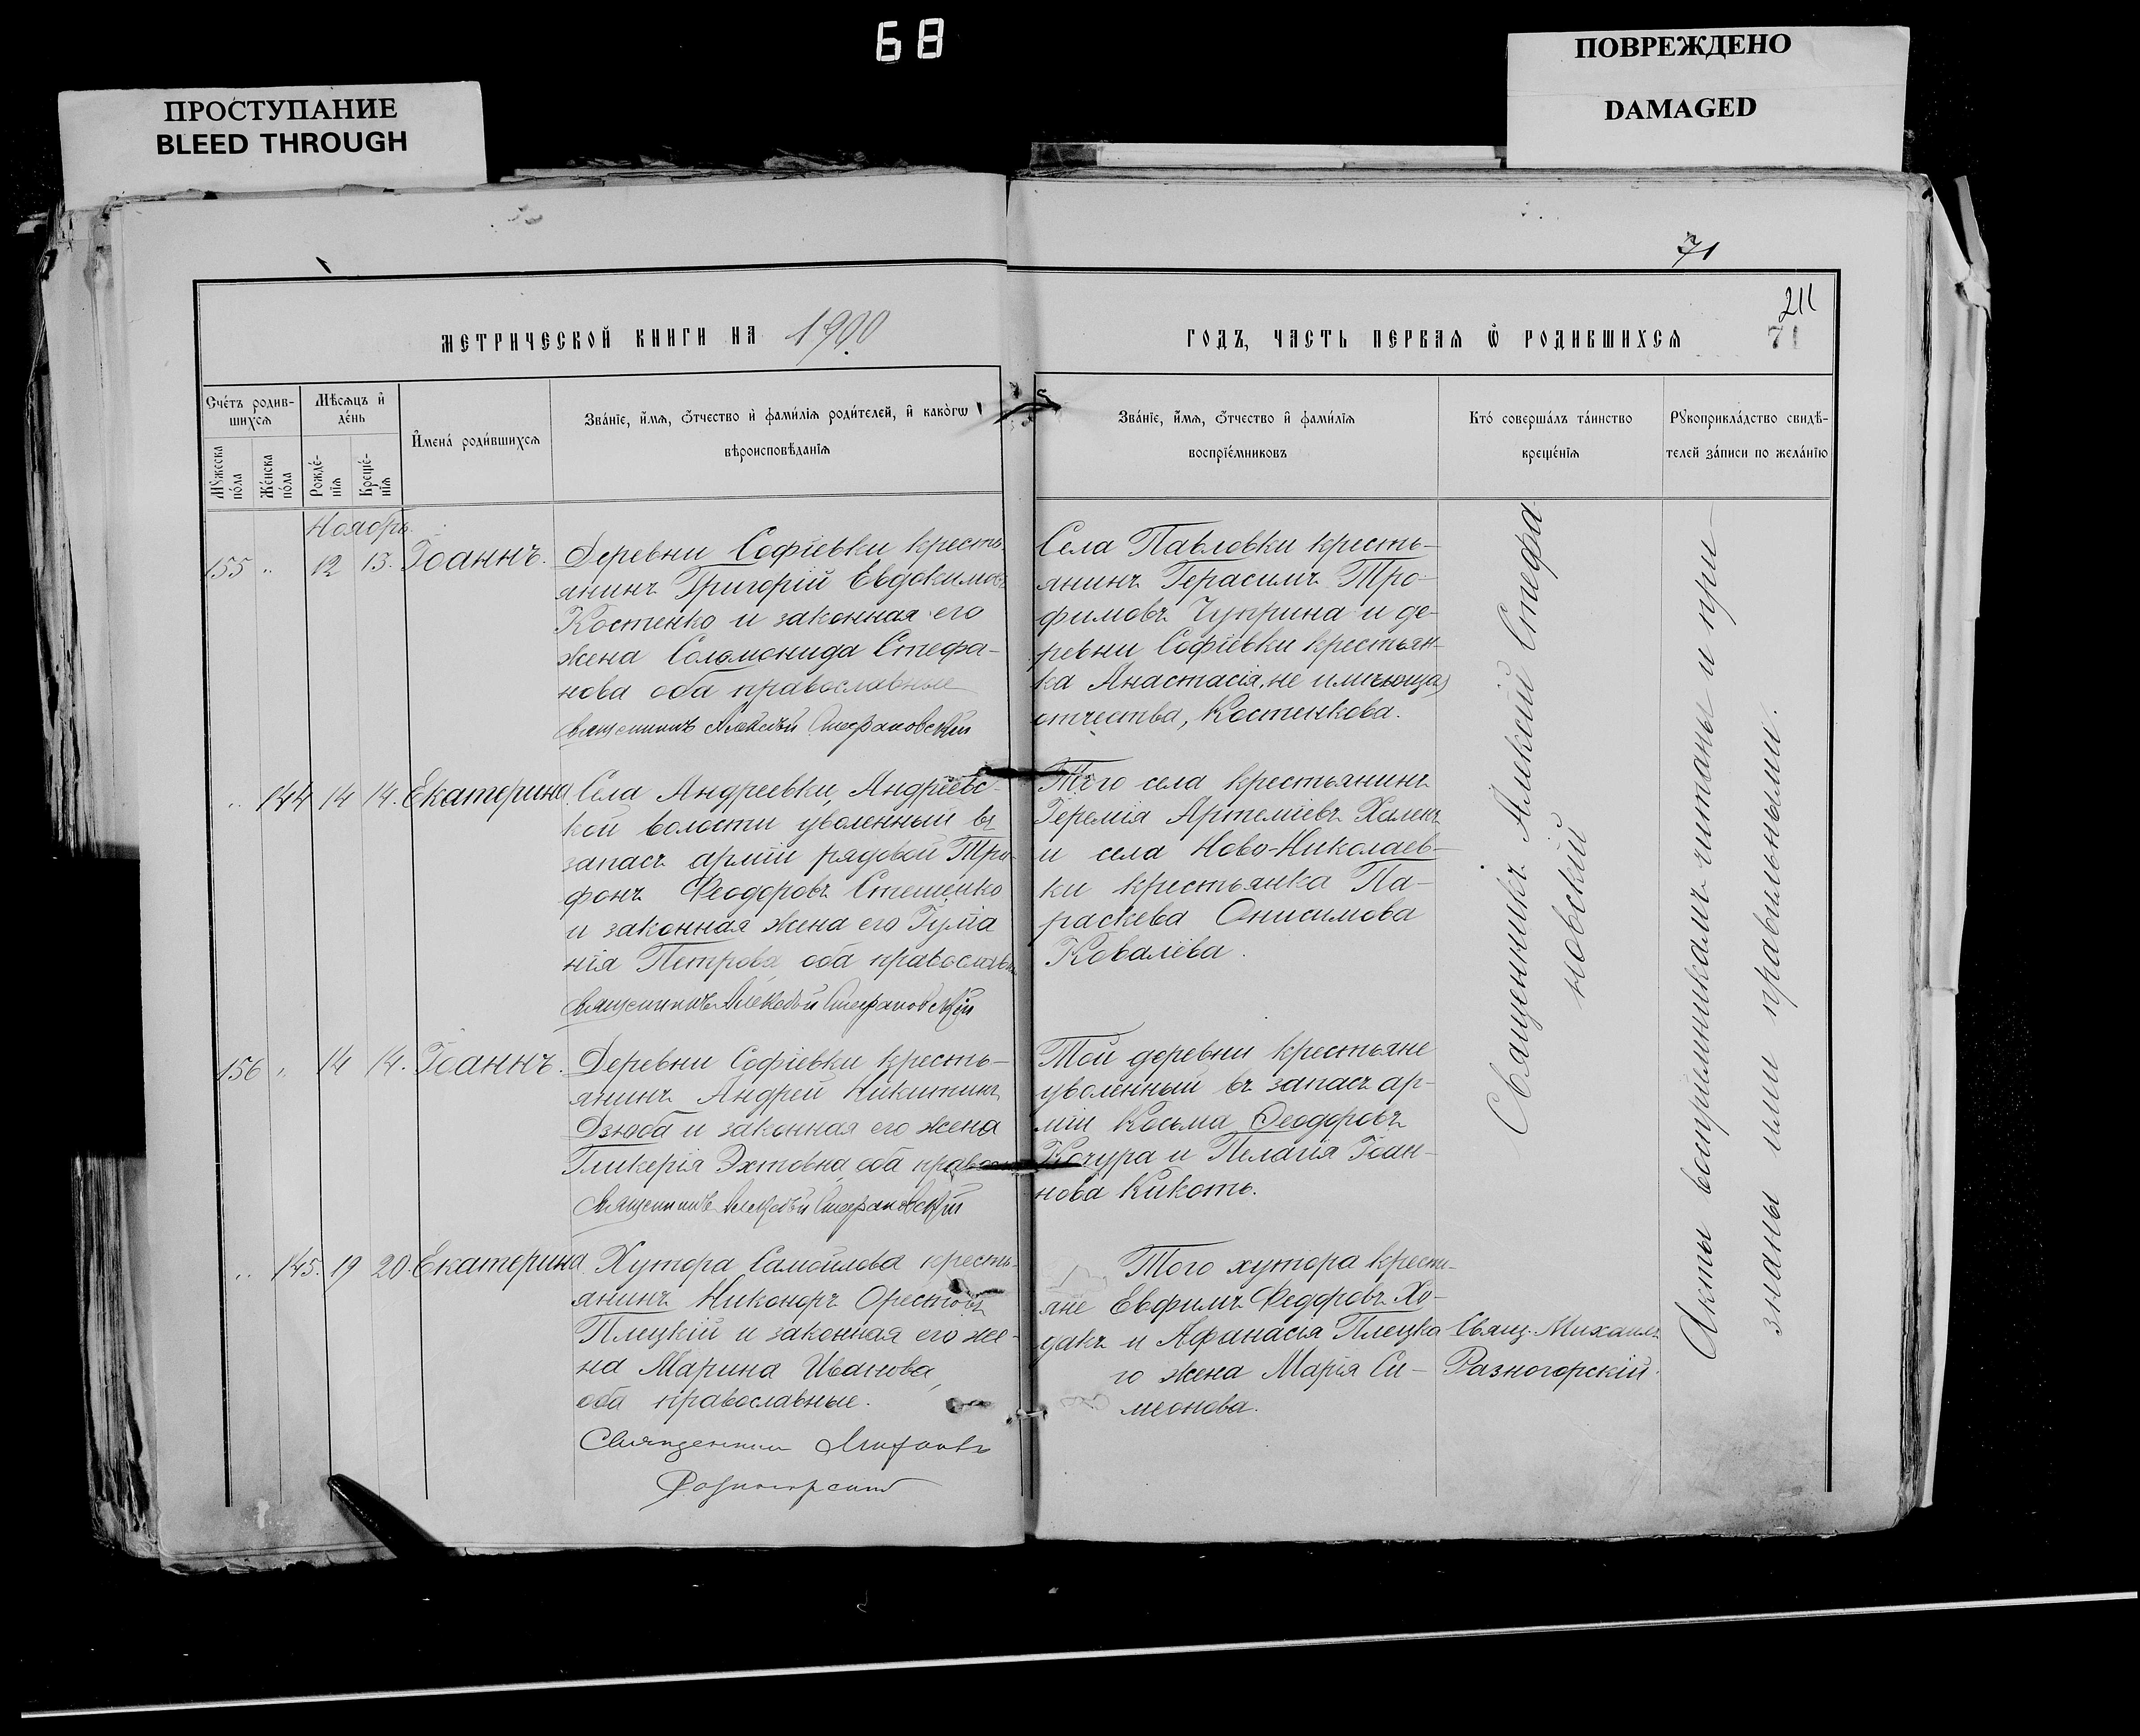 68
ПРОСТУПАНИЕ
BLEED THROUGH
ПОВРЕЖДЕНО
DAMAGED
71
211
71
МЕТРИЧЕСКОЙ КНИГИ НА 1900
ГОДЪ, ЧАСТЬ ПЕРВАЯ Ѡ РОДИВШИХСЯ
Счетъ родив-
шихся
Мѣсяцъ и
день
Мужеска
пола
Женска
пола
Рожде-
нія
Креще-
нія
Имена родившихся
Званіе, имя, отчество и фамилія родителей, и какогѡ
вѣроисповѣданія
Званіе, имя, отчество и фамилія
воспріемниковъ
Кто совершалъ таинство
крещенія
Рукоприкладство свидѣ-
телей записи по желанію
Ноябрь
155 " 12 13. Іоаннъ.
Деревни Софіевки кресть-
янинъ Григорій Евдокимовъ
Костенко и законная его
жена Соломонида Стефа-
нова оба православные
Священникъ Алексѣй Стефановскій
Села Павловки кресть-
янинъ Герасимъ Тро-
фимовъ Чуприна и де-
ревни Софіевки крестьян-
ка Анастасія, не имѣющая
отчества, Костенкова.
" 144 14 14. Екатерина
Села Андреевки, Андріевс-
кой волости уволенный въ
запасъ арміи рядовой Три-
фонъ Феодоровъ Стешенко
и законная жена его
нія Петрова, оба православн
Священникъ Алексѣй Стефановскій
Того села крестьянинъ
Іеремія Артеміевъ
и села Ново-Николаев-
ки крестьянка Па-
раскева Онисимова
Ковалева.
156 " 14 14. Іоаннъ.
Деревни Софіевки кресть-
янинъ Андрей Никитинъ
Дзюба и законная его жена
Гликерія оба
Священникъ Алексѣй Стефановскій
Той деревни крестьяне
уволенный въ запасъ ар-
міи Косьма Феодоровъ
Кочура и Пелагія Іоан-
нова Кикоть.
" 145. 19 20. Екатерина
Хутора Самойлова кресть-
янинъ Никоноръ Орестовъ
Плецкій и законная его же-
на Марина Иванова,
оба православные.
Священникъ Михаилъ
Разногорскій
Того хутора кресть-
яне Евфимъ Федоровъ Хо-
дакъ и Афанасія Плецка-
го жена Марія Си-
меонова.
Священникъ Алексій Стефа-
новскій
Свящ. Михаилъ
Разногорскій.
Акты воспріемникамъ читаны и при-
знаны ими правильными.